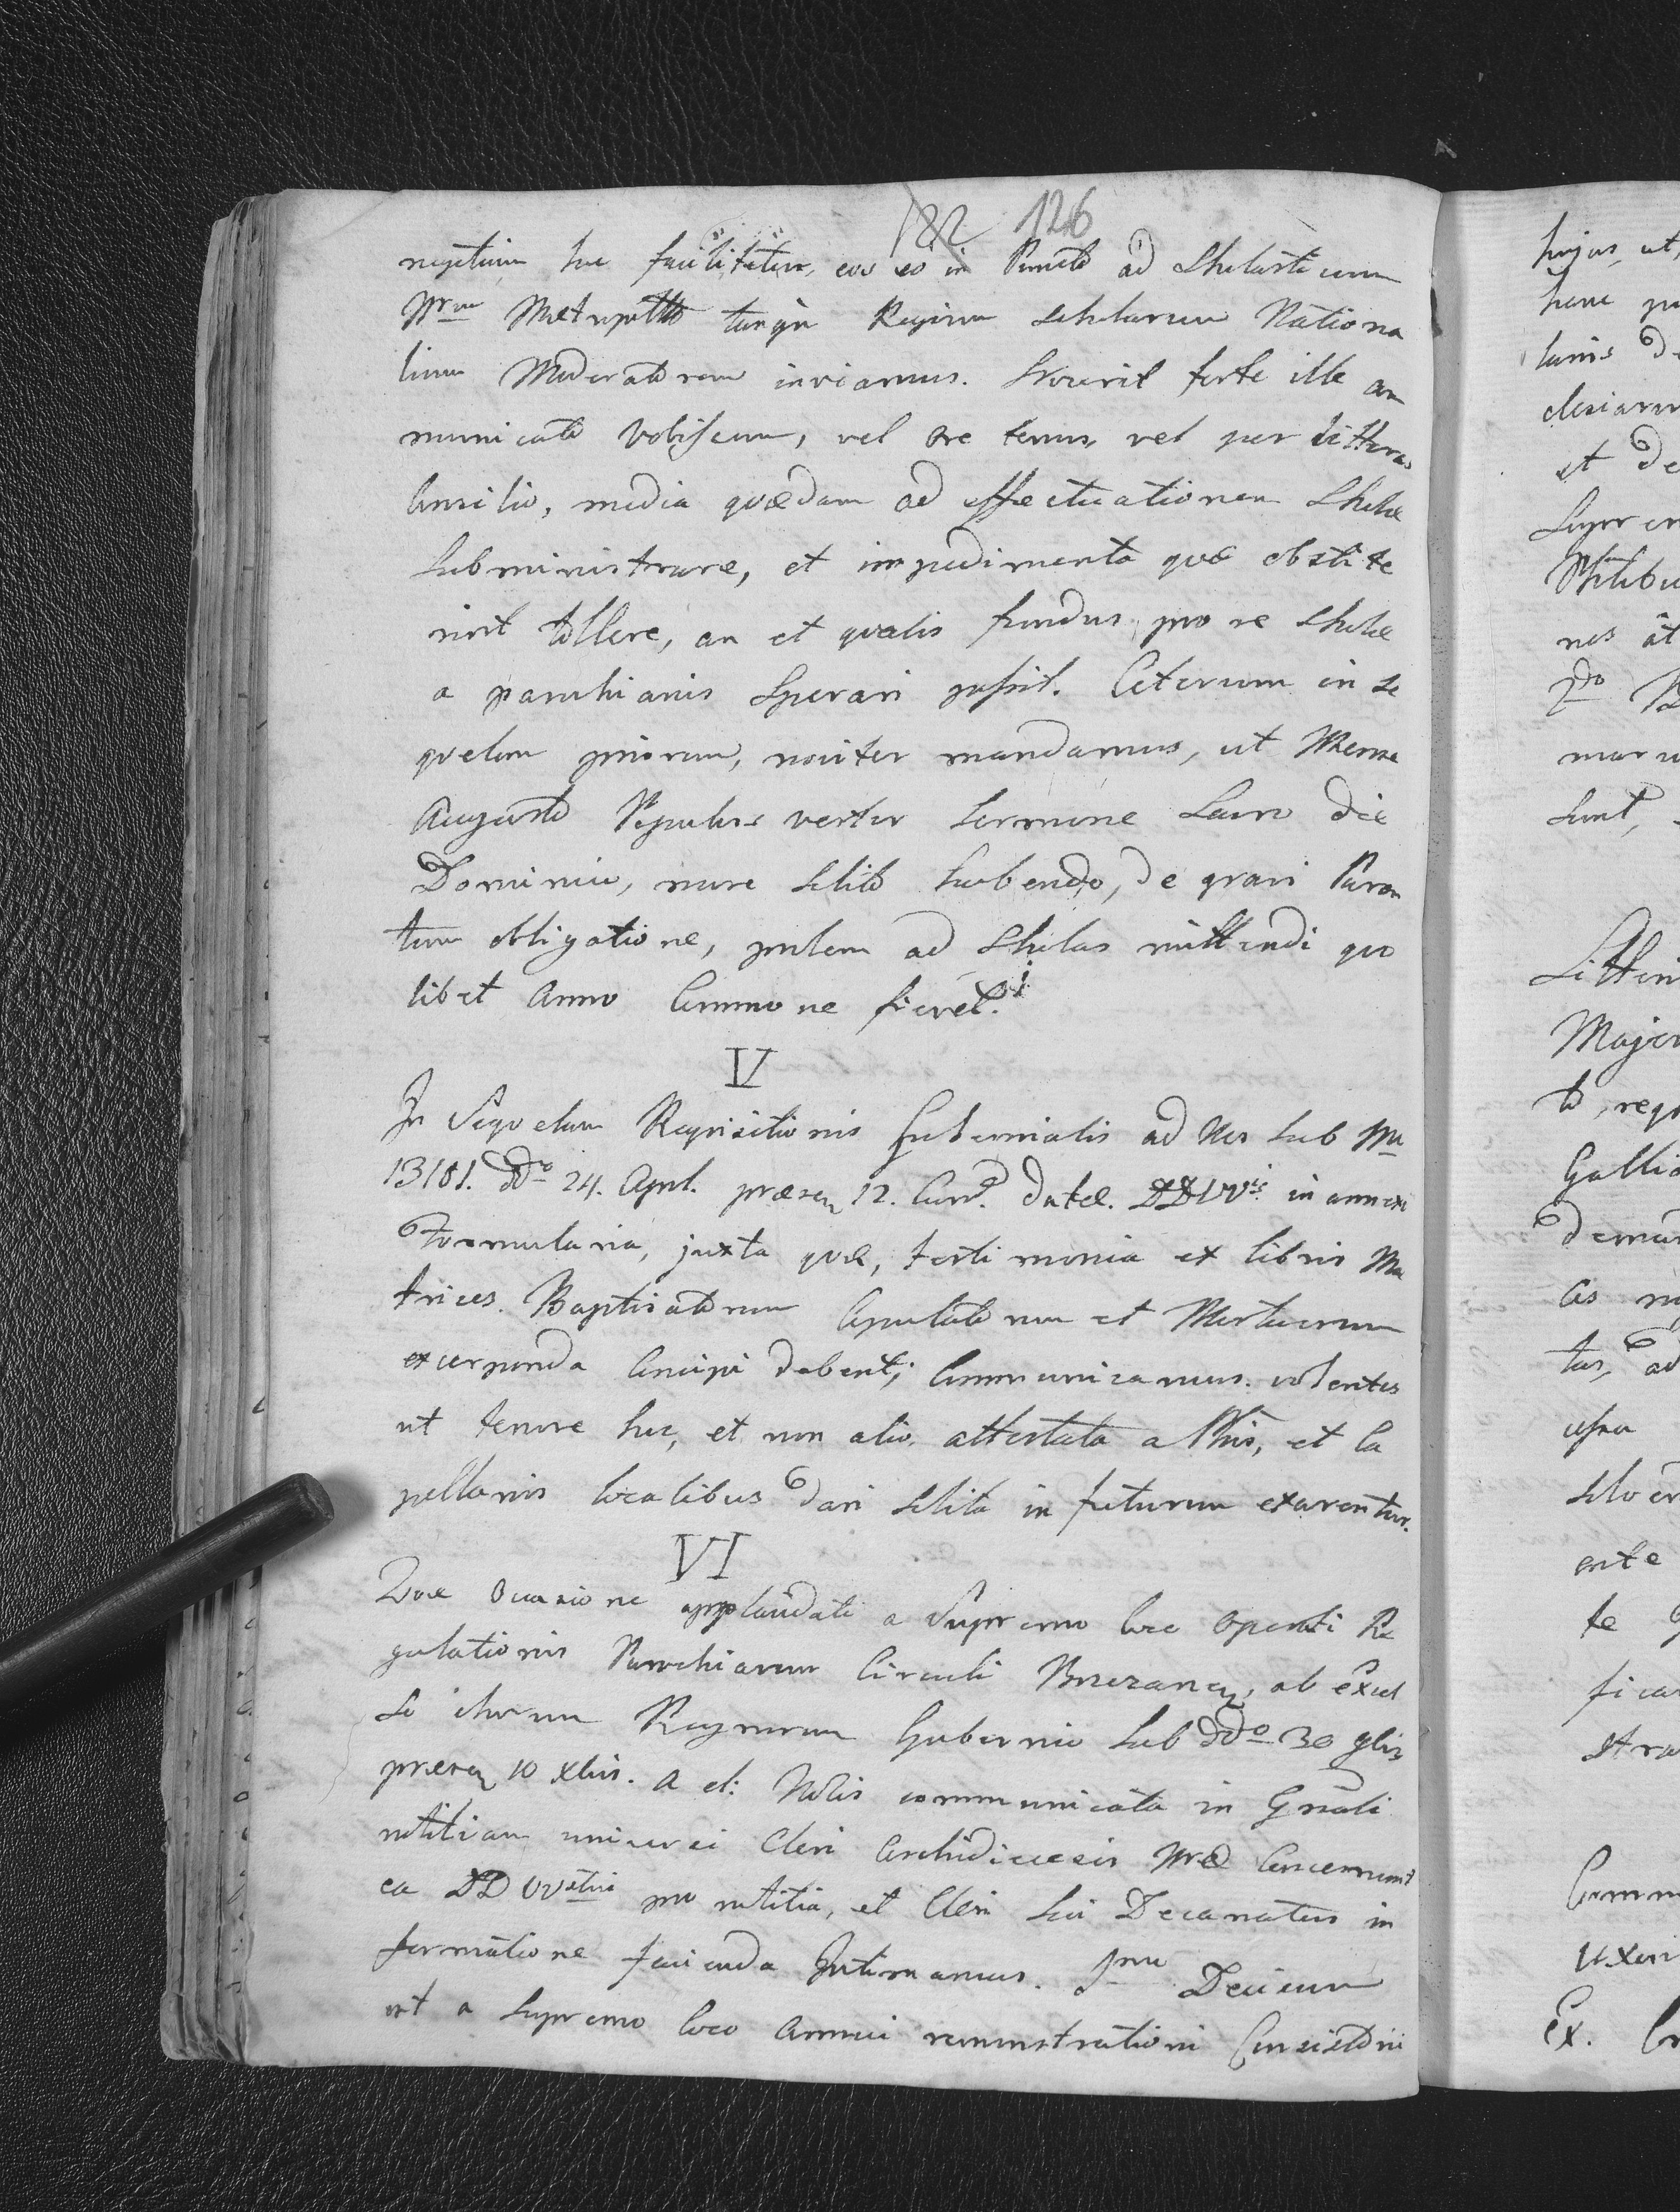 122 126
negotium hoc facilitetur, eos eo in Puncto ad Scholasticum
Nrum Metropttto tanqm Regium Scholarum Nationa
lium Moderatorem inviamus. Noverit forte ille com
municato Vobiscum, vel ore tenus, vel per litteras
Consilio, media quædam ad effectuationem Scholæ
Subministrare, et impedimenta quæ obstite
rint tollere, an et qualis fundus pro re Scholæ
a parochianis Sperari possit. Ceterum in Se
quelam priorum, noviter mandamus, ut Mense
Augusto Populus vester Sermone Sacro die
Dominico, more Solito habendo, de gravi Paren
tum obligatione, prolem ad Scholas mittendi quo
libet Anno Commone fieret.
V
In Sequelam Requisitionis Gubernialis ad Nos Sub Nro
13101. ddo 24. April. præsen 12. Curr. datæ. DDVVris in annexo
Formularia, juxta quæ, testimonia ex libris Ma
trices. Baptisatorum Copulatorum et Mortuorum
excerpenda Concipi debent; Communicamus. volentes
ut tenore hoc, et non alio, attestata a Phis, et Ca
pellanis localibus dari Solita in futurum exarentur.
VI
Quæ Occasione applaudati a Supremo loco Operati Re
gulationis Parochiarum Circuli Brzezan, ab excel
So Horum Regnorum Gubernio Sub ddo 30 9bris
præsen 10 Xbris. a et: Nobis communicata in Gnali
notitiam universi Cleri Archidiœcesis Nræ Concernunt
ea DDVVstris pro notitia, et Cleri Sui Decanatus in
formatione facienda Intimamus. 1mo Decisum
est a Supremo loco Annui remonstrationi Consistorii